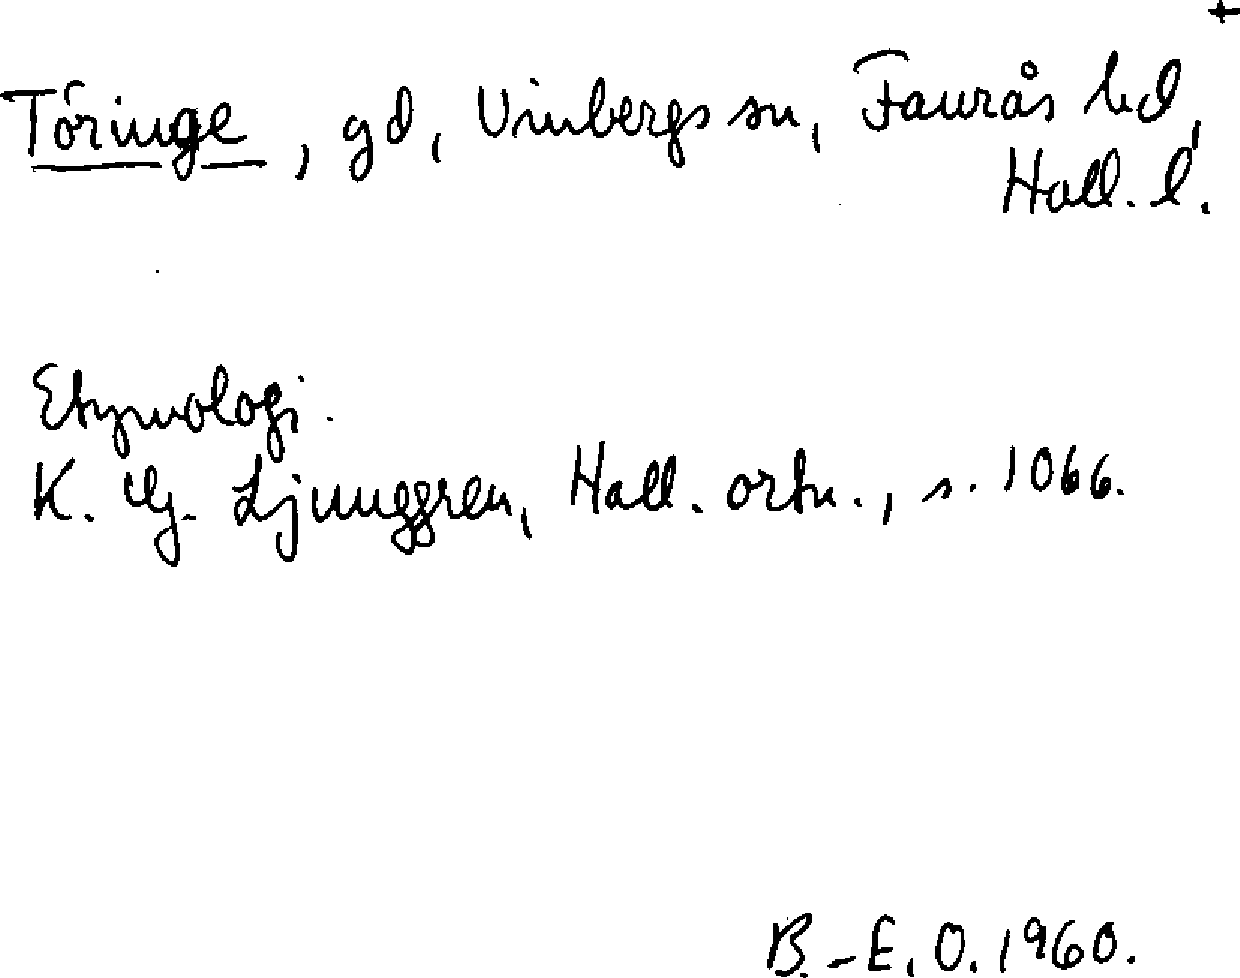 +
Töringe, gd, Vinbergs sn, Faurås hd,
Hall. l.
Etymologi.
K. G. Ljunggren, Hall. ortn., s. 1066.
B.-E. O. 1960.